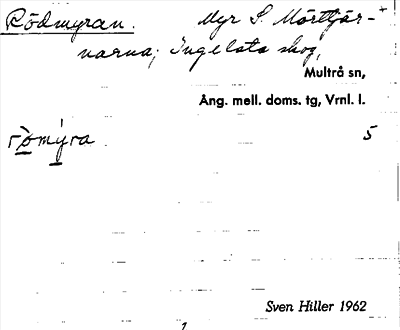 Rödmyran. Myr S. Mörttjär-+
narna; Ingelsta skog,
Multrå sn,
Ång. mell. doms. tg, Vrnl. l.
ròmýra 5
Sven Hiller 1962
1